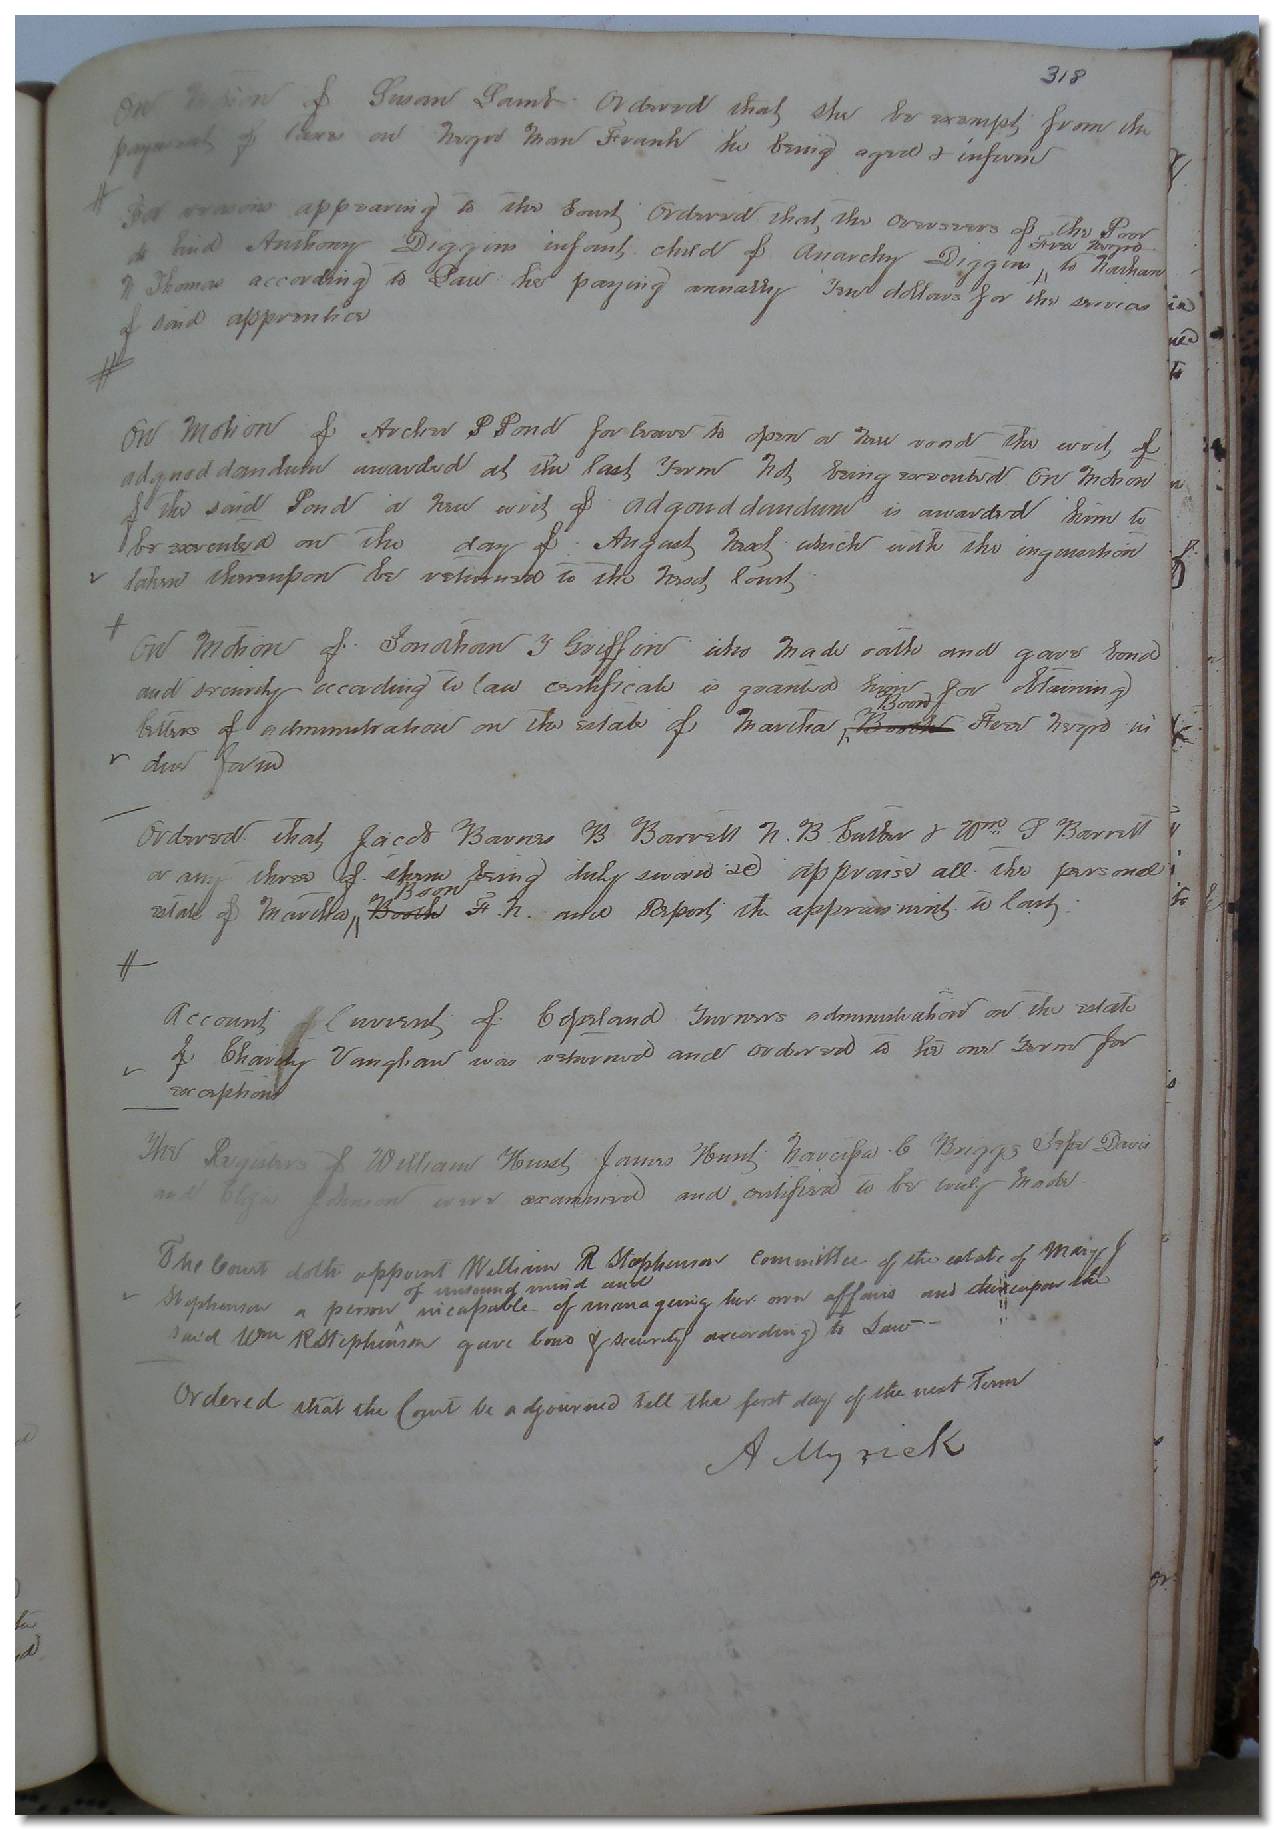 318
On Motion of Susan Lamb Ordered that she be exempt from the
payment of taxes on Negro Man Frank he being aged & infirm
For reasons appearing to the Court Ordered that the Overseers of the Poor
do bind Anthony Diggins infant child of Anarchy Diggins Free Negro to Nathan
N Thomas according to Law he paying anually Ten dollars for the services
of said apprentice
On Motion of Archer P Pond for leave to open a New road the writ of
adquoddamdum awarded at the last Term Not being executed On Motion
of the said Pond a New writ of adquoddamdum is awarded him to
be executed on the day of August Next which with the inquisition
taken thereupon be returned to the Next Court
On Motion of Jonathan T Griffin who Made oath and gave bond
and security according to law certificate is granted him for obtaining
letters of administration on the estate of Martha Boon Booth Free Negro in
due form
Ordered that Jacob Barnes B Barrett N. B. Cutler & Wm. T Barrett
or any three of them being duly sworn do appraise all the personal
estate of Martha Boon Booth F. N. and Report the appraisment to Court
Account of Current of Copeland Turners administration on the estate
of Charity Vaughan was returned and ordered to lie one Term for
exceptions
The Registers of William Hunt James Hunt Narcissa C Briggs Davis
and Eliza Johnson were examined and certified to be truly Made
The Court doth appoint William R Stephenson Committee of the estate of Mary J
Stephenson a person of unsound mind and incapable of manageing her own affairs and thereupon the
said Wm R Stephenson gave bond & security according to Law
Ordered that the Court be adjourned till the first day of the next Term
A Myrick